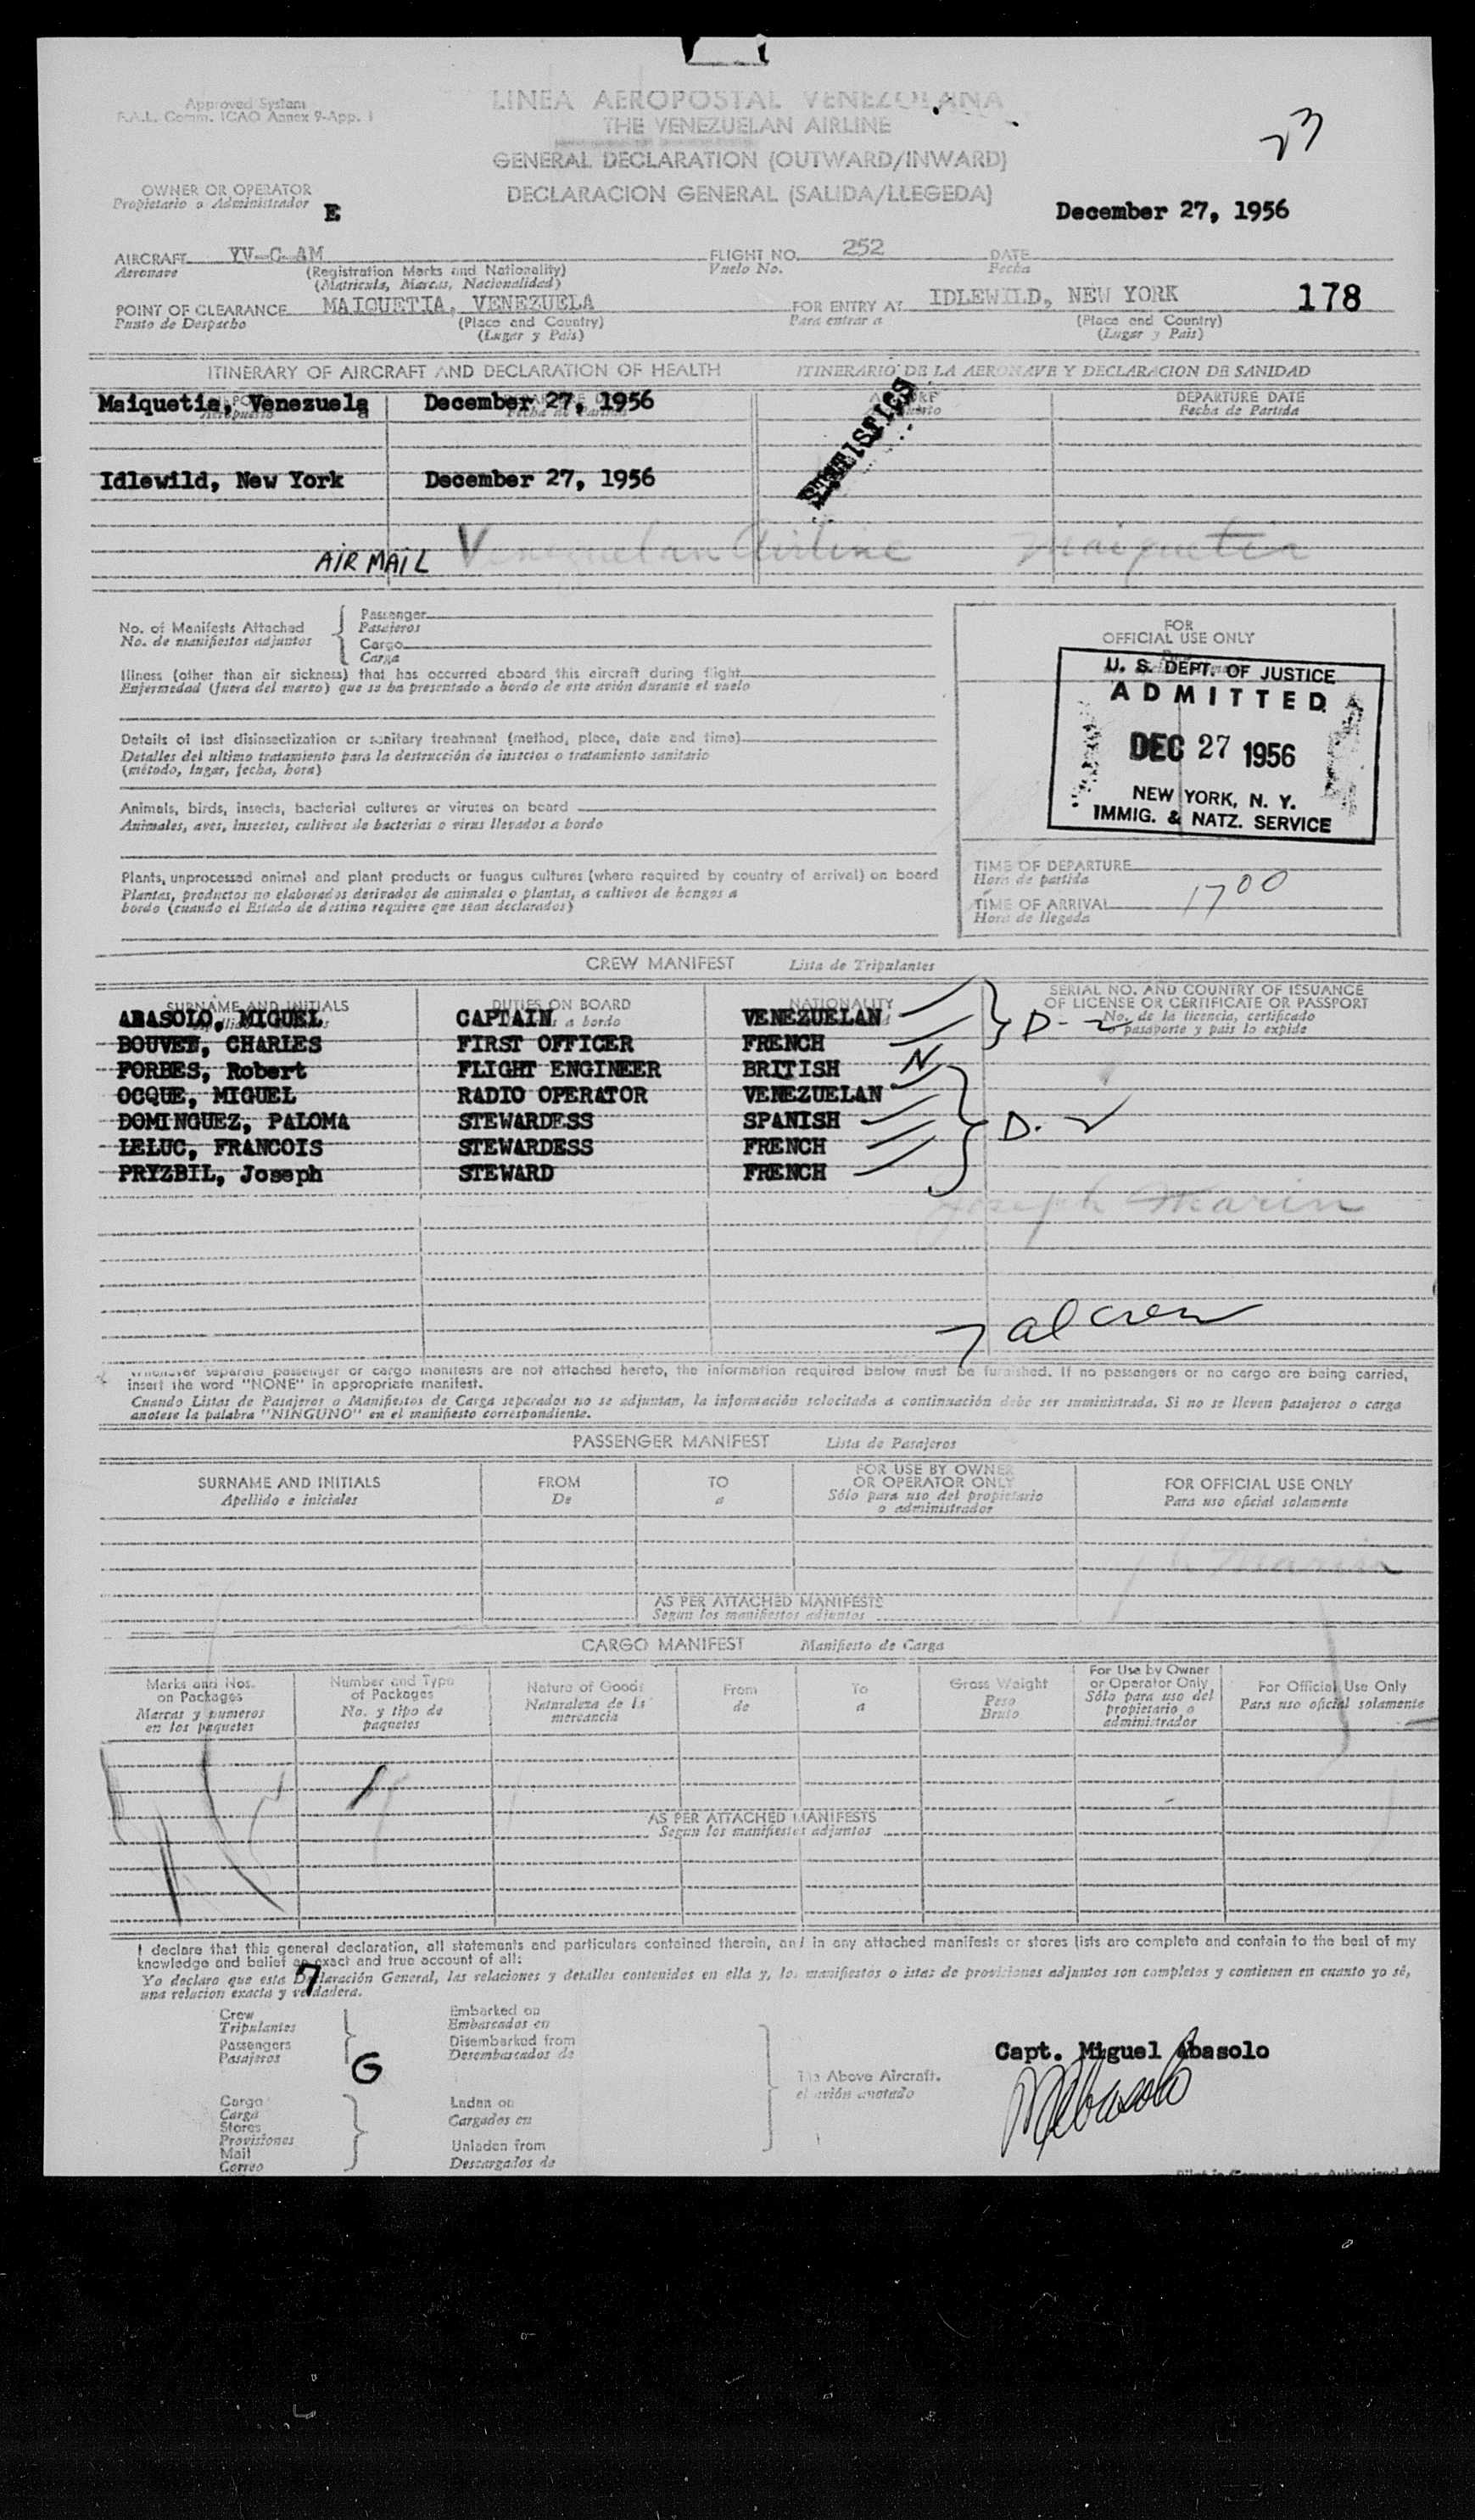 Approved System
F.A.L. Comm. ICAO Annex 9-App. I
LINEA AEROPOSTAL VENEZOLANA
THE VENEZUELAN AIRLINE
GENERAL DECLARATION (OUTWARD/INWARD)
DECLARACION GENERAL (SALIDA/LLEGEDA)
23
OWNER OR OPERATOR
Propietario o Administrador
E
December 27, 1956
AIRCRAFT YV-C-AM
Aeronave
(Registration Marks and Nationality)
(Matricula, Marcas, Nacionalidad)
FLIGHT NO. 252
Vuelo No.
DATE
Fecha
POINT OF CLEARANCE MAIQUETIA, VENEZUELA
Punto de Despacho
(Place and Country)
(Lugar y Pais)
FOR ENTRY AT IDLEWILD, NEW YORK
Para entrar a
(Place and Country)
(Lugar y Pais)
178
ITINERARY OF AIRCRAFT AND DECLARATION OF HEALTH
ITINERARIO DE LA AERONAVE Y DECLARACION DE SANIDAD
Maiquetia, Venezuela December 27, 1956
DEPARTURE DATE
Fecha de Partida
STATISTICS
Idlewild, New York December 27, 1956
AIR MAIL Venezuelan Airline Maiquetia
No. of Manifests Attached
No. de manifiestos adjuntos
Passenger
Pasajeros
Cargo
Carga
Illness (other than air sickness) that has occurred aboard this aircraft during flight
Enfermedad (fuera del mareo) que se ha presentado a bordo de este avión durante el vuelo
Details of last disinsectization or sanitary treatment (method, place, date and time)
Detalles del ultimo tratamiento para la destrucción de insectos o tratamiento sanitario
(método, lugar, fecha, hora)
Animals, birds, insects, bacterial cultures or viruses on board
Animales, aves, insectos, cultivos de bacterias o virus llevados a bordo
Plants, unprocessed animal and plant products or fungus cultures (where required by country of arrival) on board
Plantas, productos no elaborados derivados de animales o plantas, a cultivos de hongos a
bordo (cuando el Estado de destino requiere que sean declarados)
FOR
OFFICIAL USE ONLY
U. S. DEPT. OF JUSTICE
ADMITTED
DEC 27 1956
NEW YORK, N. Y.
IMMIG. & NATZ. SERVICE
TIME OF DEPARTURE
Hora de partida
TIME OF ARRIVAL 1700
Hora de llegada
CREW MANIFEST Lista de Tripulantes
SURNAME AND INITIALS
DUTIES ON BOARD
a bordo
NATIONALITY
SERIAL NO. AND COUNTRY OF ISSUANCE
OF LICENSE OR CERTIFICATE OR PASSPORT
No. de la licencia, certificado
o pasaporte y pais lo expide
ABASOLO, MIGUEL CAPTAIN VENEZUELAN
D-2
BOUVET, CHARLES FIRST OFFICER FRENCH
FORBES, Robert FLIGHT ENGINEER BRITISH N
OCQUE, MIGUEL RADIO OPERATOR VENEZUELAN
DOMINGUEZ, PALOMA STEWARDESS SPANISH
D-2
LELUC, FRANCOIS STEWARDESS FRENCH
PRYZBIL, Joseph STEWARD FRENCH
Joseph Marin
7 al crew
Whenever separate passenger or cargo manifests are not attached hereto, the information required below must be furnished. If no passengers or no cargo are being carried,
insert the word "NONE" in appropriate manifest.
Cuando Listas de Pasajeros o Manifiestos de Carga separados no se adjuntan, la información solocitada a continuación debe ser suministrada. Si no se lleven pasajeros o carga
anotese la palabra "NINGUNO" en el manifiesto correspondiente.
PASSENGER MANIFEST Lista de Pasajeros
SURNAME AND INITIALS
Apellido e iniciales
FROM
De
TO
a
FOR USE BY OWNER
OR OPERATOR ONLY
Sólo para uso del propietario
o administrador
FOR OFFICIAL USE ONLY
Para uso oficial solamente
Marin
AS PER ATTACHED MANIFESTS
Segun los manifiestos adjuntos
CARGO MANIFEST Manifiesto de Carga
Marks and Nos.
on Packages
Marcas y numeros
en los paquetes
Number and Type
of Packages
No. y tipo de
paquetes
Nature of Goods
Naturaleza de la
mercancia
From
de
To
a
Gross Weight
Peso
Bruto
For Use by Owner
or Operator Only
Sólo para uso del
propietario o
administrador
For Official Use Only
Para uso oficial solamente
AS PER ATTACHED MANIFESTS
Segun los manifiestos adjuntos
I declare that this general declaration, all statements and particulars contained therein, and in any attached manifests or stores lists are complete and contain to the best of my
knowledge and belief an exact and true account of all:
Yo declaro que esta Declaración General, las relaciones y detalles contenidos en ella y, los manifiestos o istas de provisiones adjuntos son completos y contienen en cuanto yo sé,
una relacion exacta y verdadera.
7
Crew
Tripulantes
Passengers
Pasajeros
G
Embarked on
Embarcados en
Disembarked from
Desembarcados de
Cargo
Carga
Stores
Provisiones
Mail
Correo
Laden on
Cargados en
Unladen from
Descargados de
The Above Aircraft.
el avión anotado
Capt. Miguel Abasolo
MAbasolo